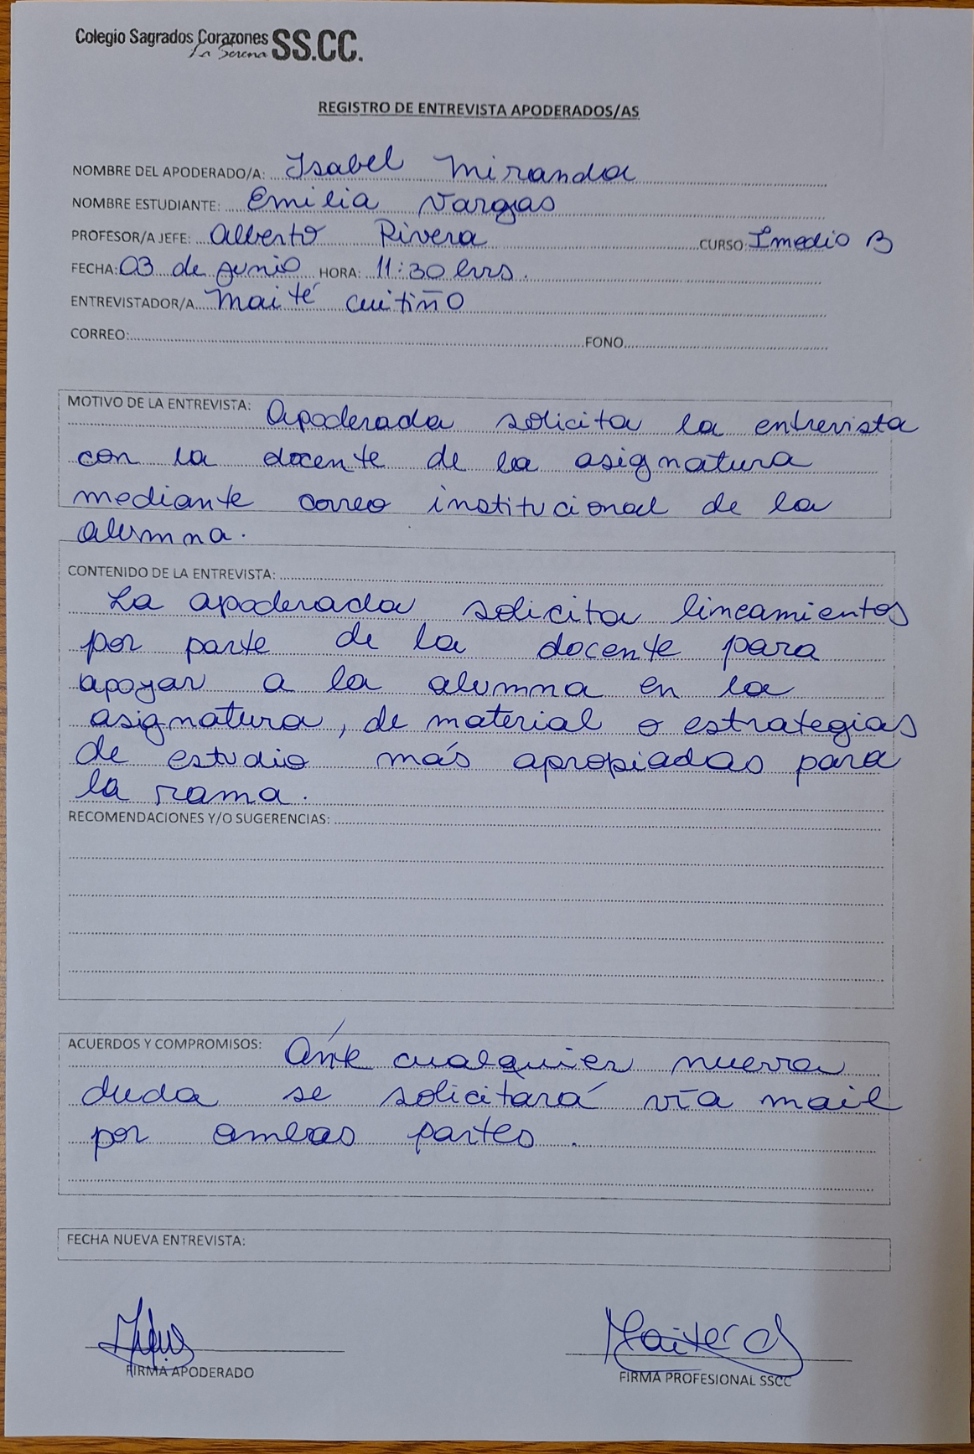 Colegio Sagrados Corazones SS.CC.
La Serena
REGISTRO DE ENTREVISTA APODERADOS/AS
NOMBRE DEL APODERADO/A: Isabel Miranda
NOMBRE ESTUDIANTE: Emilia Vargas
PROFESOR/A JEFE: Alberto Rivera CURSO: I medio B
FECHA: 03 de junio HORA: 11:30 hrs.
ENTREVISTADOR/A Maité Cuitiño
CORREO: FONO
MOTIVO DE LA ENTREVISTA: Apoderada solicita la entrevista
con la docente de la asignatura
mediante correo institucional de la
alumna.
CONTENIDO DE LA ENTREVISTA:
La apoderada solicita lineamientos
por parte de la docente para
apoyar a la alumna en la
asignatura, de material o estrategias
de estudio más apropiadas para
la rama.
RECOMENDACIONES Y/O SUGERENCIAS:
ACUERDOS Y COMPROMISOS: Ante cualquier nueva
duda se solicitará vía mail
por ambas partes.
FECHA NUEVA ENTREVISTA:
FIRMA APODERADO
FIRMA PROFESIONAL SSCC